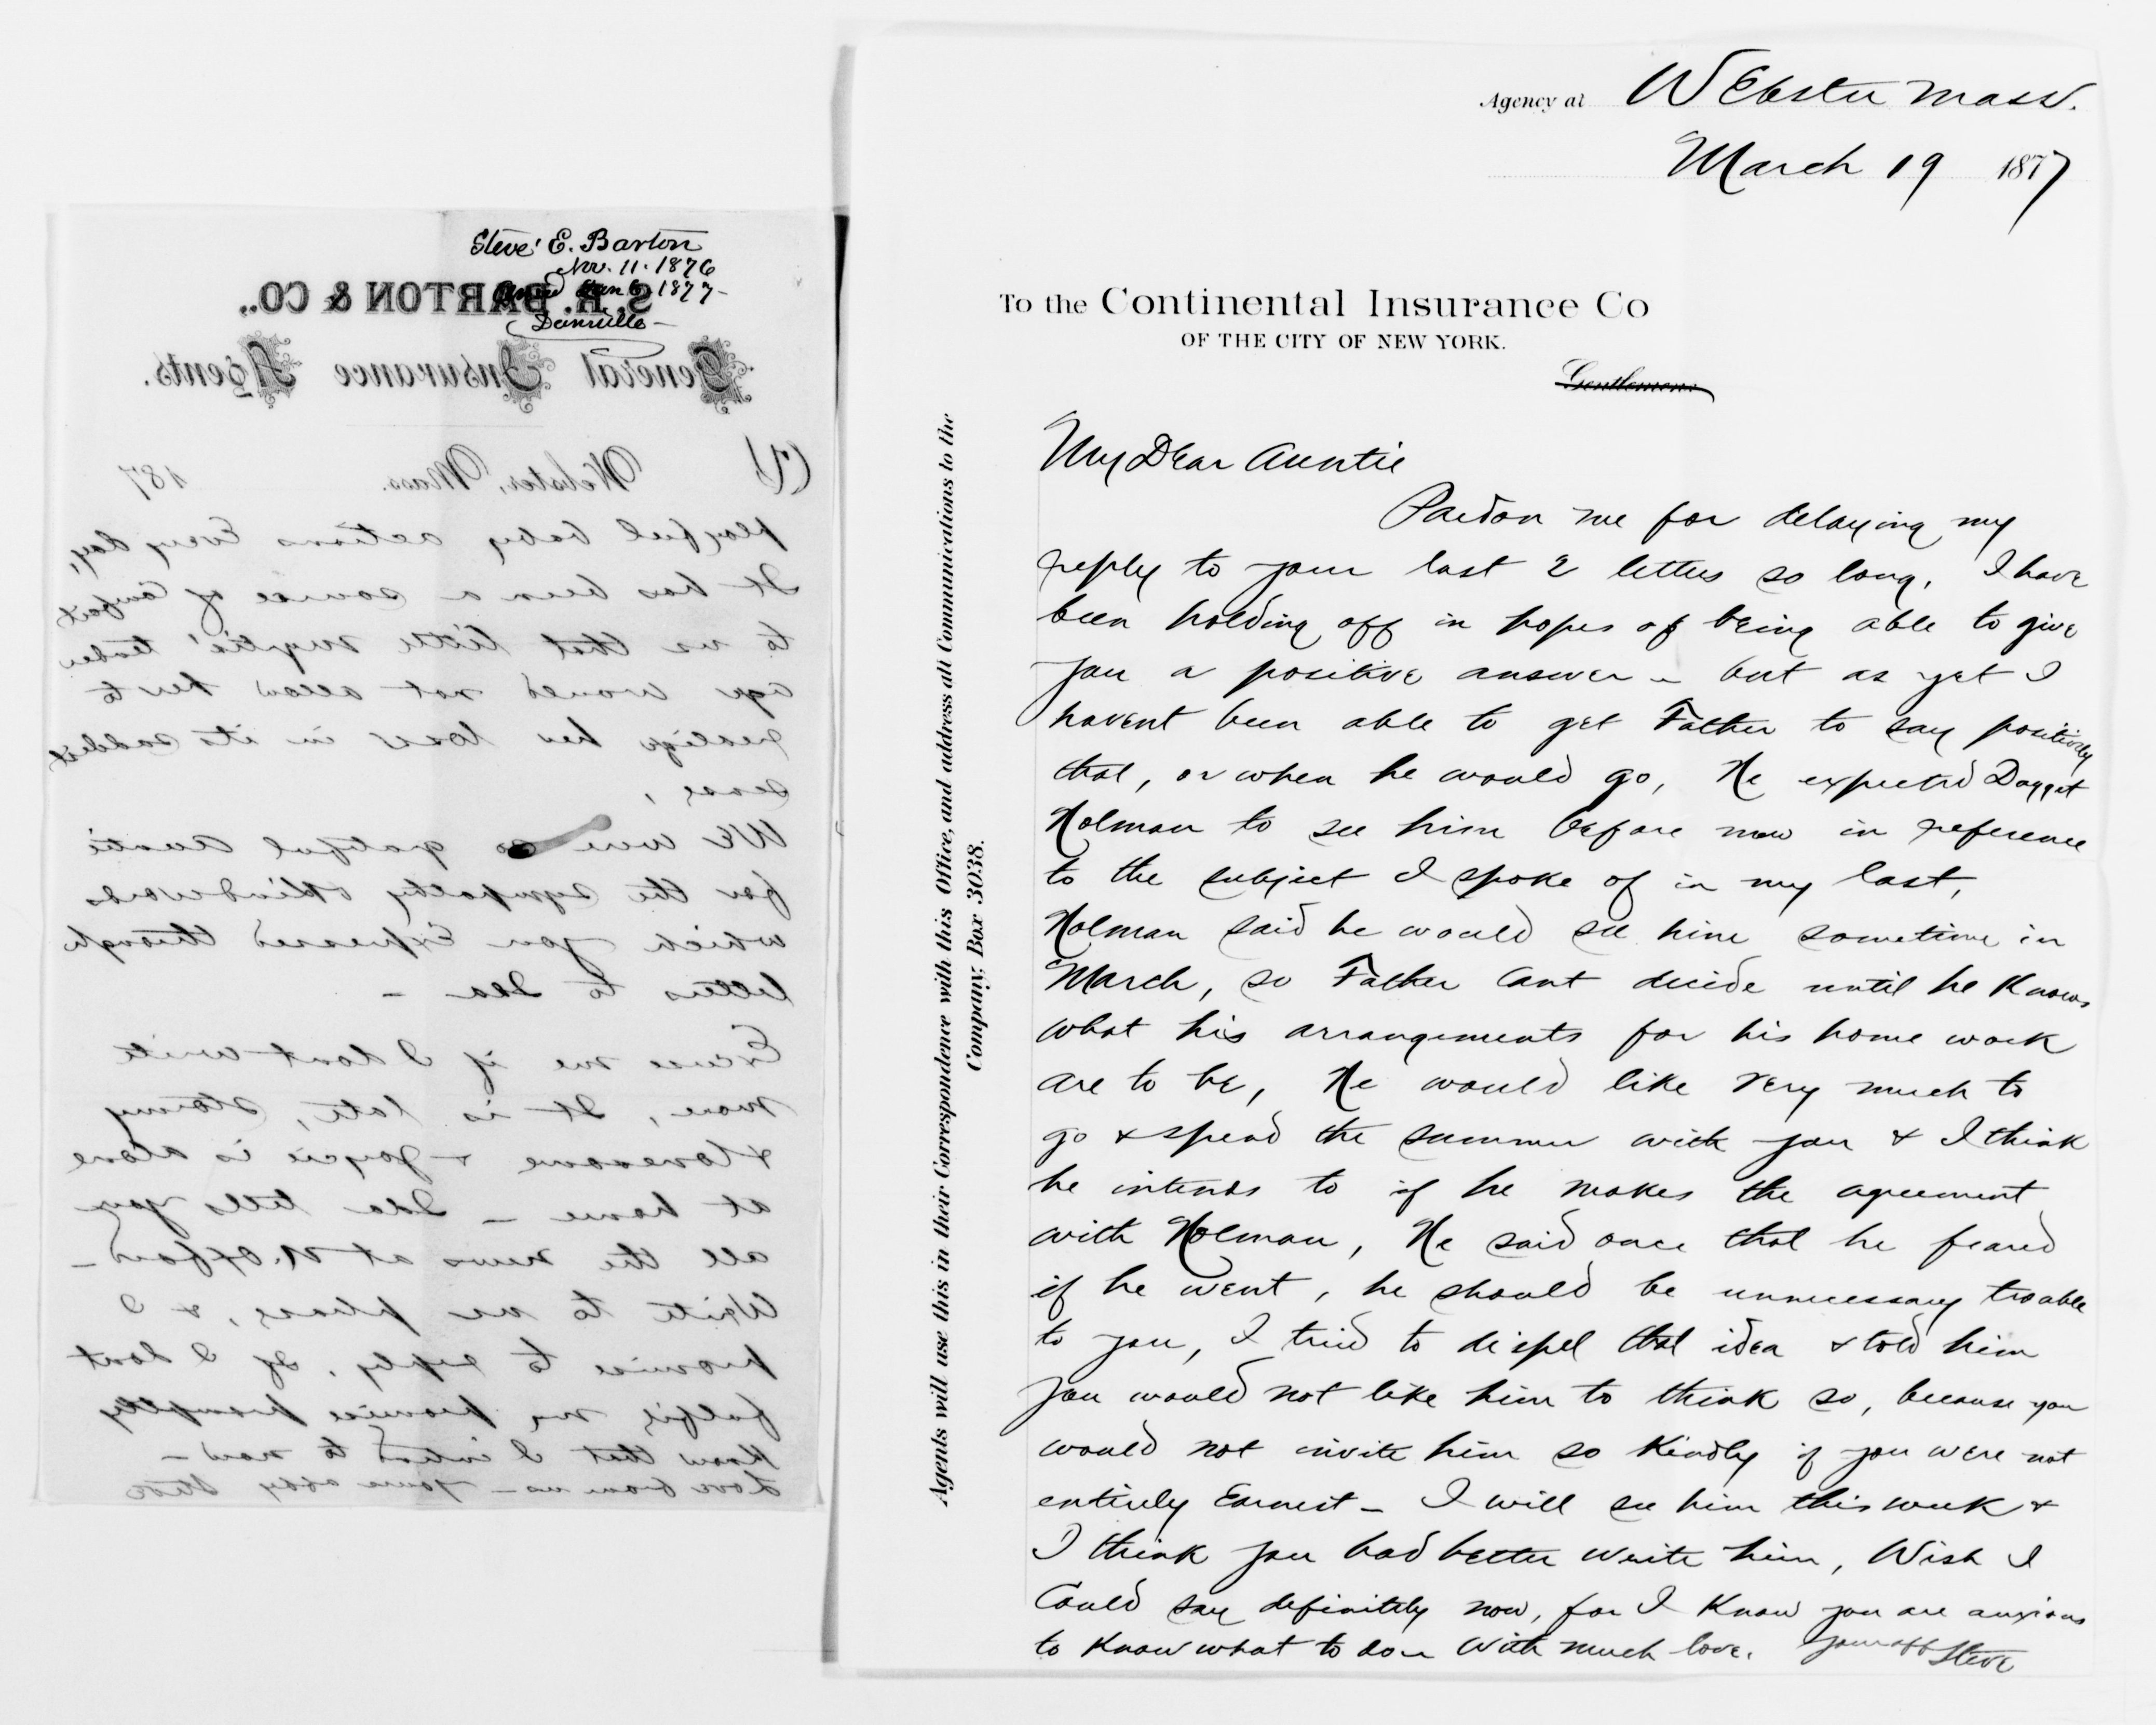 Steve' E. Barton
Nov. 11. 1876
Jan 6, 1877-
Dansville-
S. R. BARTON & CO.,
General Insurance Agents.
Webster, Mass. 187
playful baby actions Every day,
It has been a source of comfort
to us that little Myrtie' tender
age would not allow her to
realize her loss in its saddest
sense,
We were so grateful Auntie
for the sympathy & kind words
which you Expressed through
letters to Ida -
Excuse me if I dont write
more, It is late, stormy
& lonesome & Joycie is alone
at home - Ida tells you
all the news at N. Oxford -
Write to me please, & I
promise to reply. If I dont
fulfil my promise promptly
Know that I intend to now -
Love from us - yours affy Steve
Agency at Webster Mass.
March 19 1877
To the Continental Insurance Co
OF THE CITY OF NEW YORK.
Gentlemen:
Agents will use this in their Correspondence with this Office, and address all Communications to the
Company, Box 3038.
My Dear Auntie
Pardon me for delaying my
reply to your last 2 letters so long, I have
been holding off in hopes of being able to give
you a positive answer - but as yet I
havent been able to get Father to say positively
that, or when he would go, He expected Dagget
Holman to see him before now in reference
to the subject I spoke of in my last,
Holman said he would see him sometime in
March, so Father Cant decide until he Knows
what his arrangements for his home work
are to be, He would like very much to
go & spend the summer with you & I think
he intends to if he makes the agreement
with Holman, He said once that he feared
if he went, he should be unnecessary trouble
to you, I tried to dispel that idea & told him
you would not like him to think so, because you
would not invite him so Kindly if you were not
entirely Earnest - I will see him this week &
I think you had better write him, Wish I
Could say definitely now, for I Know you are anxious
to Know what to do - With much love. Your aff Steve